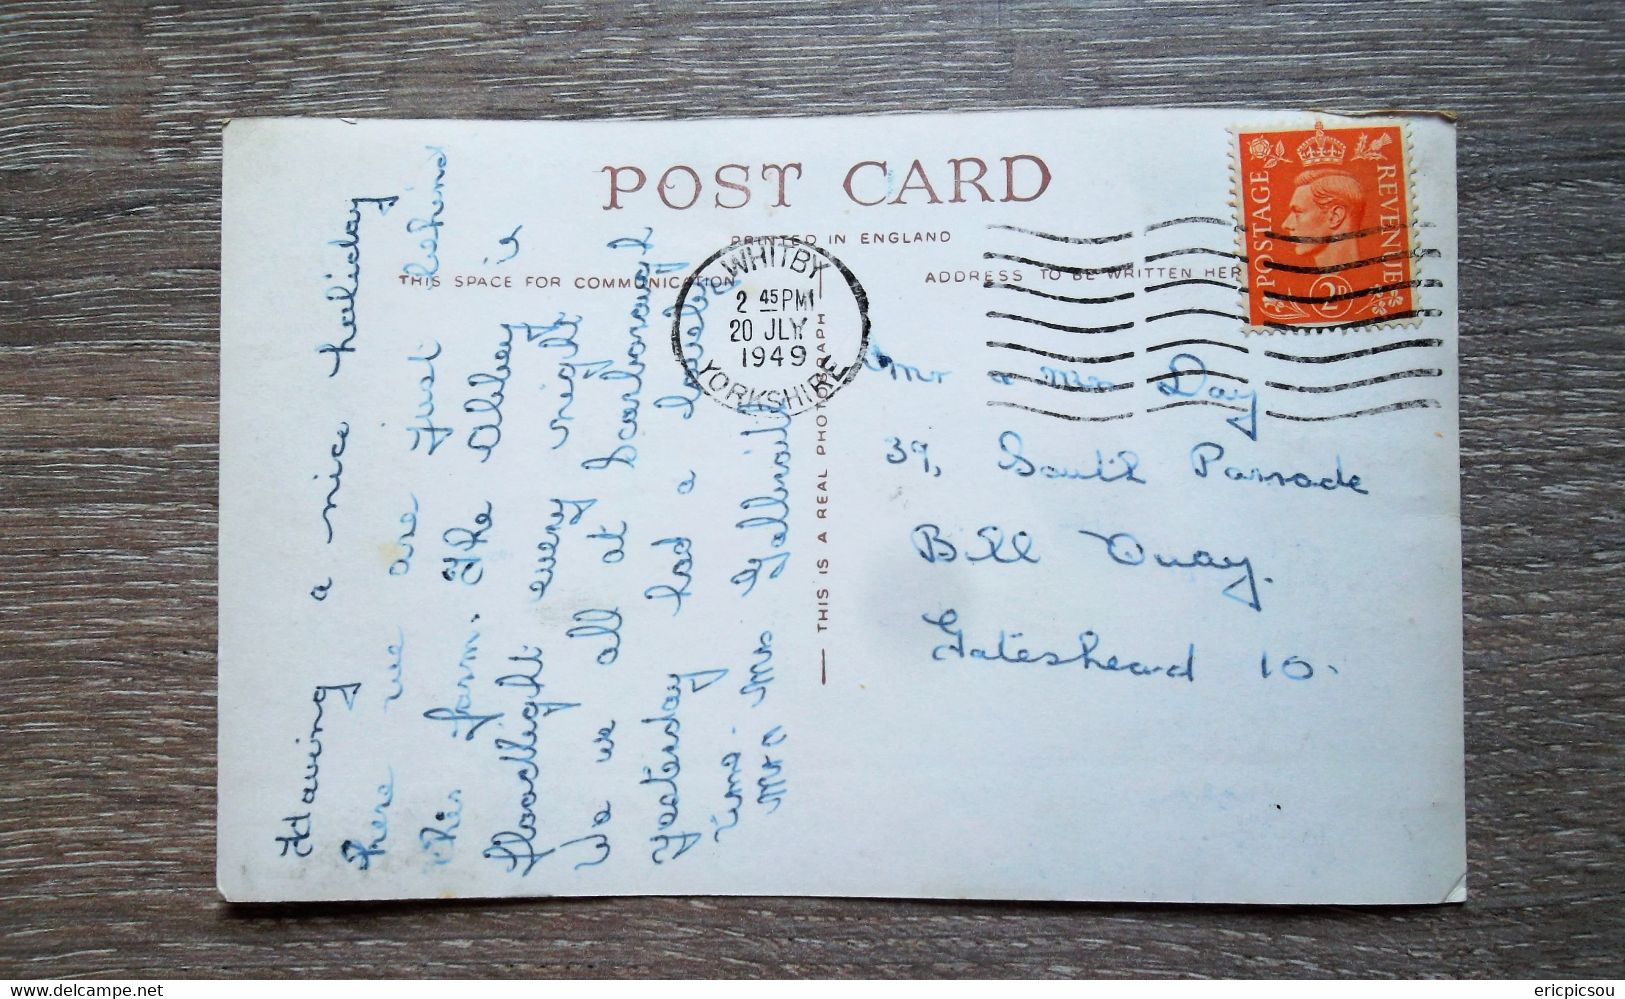 POST CARD
PRINTED IN ENGLAND
THIS SPACE FOR COMMUNICATION
ADDRESS TO BE WRITTEN HER
THIS IS A REAL PHOTOGRAPH
WHITBY
2 45 PM
20 JLY
1949
YORKSHIRE
POSTAGE
REVENUE
2D
Having a nice holiday
here we are just behind
this farm. The Abbey is
floodlight every night
We we all at Scarborough
Yesterday had a lovely
time.
Mr & Mrs
Mr & Mrs Day
39, South Parrade
Bill Quay.
Gateshead 10.
delcampe.net
ericpicsou